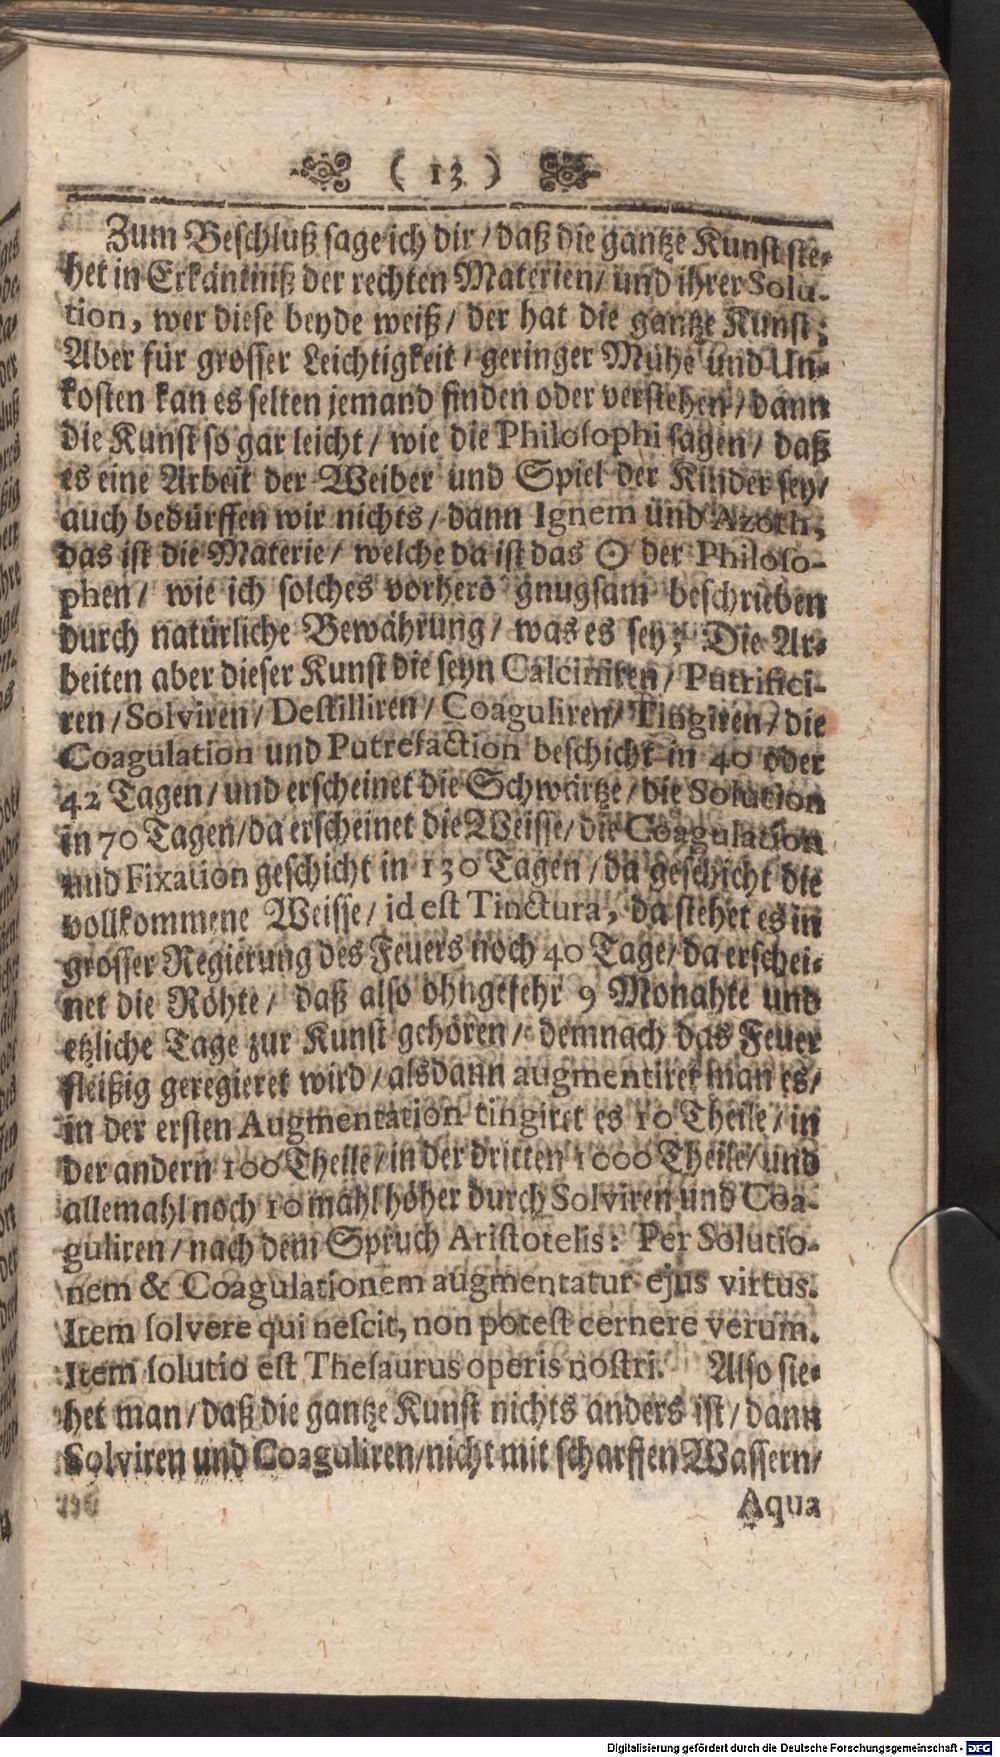 ( 13 )
Zum Beschluß sage ich dir / daß die gantze Kunst ste-
het in Erkäntniß der rechten Materien / und ihrer Solu-
tion, wer diese beyde weiß / der hat die gantze Kunst;
Aber für grosser Leichtigkeit / geringer Mühe und Un-
kosten kan es selten jemand finden oder verstehen / dann
die Kunst so gar leicht / wie die Philosophi sagen / daß
es eine Arbeit der Weiber und Spiel der Kinder sey /
auch bedürffen wir nichts / dann Ignem und Azoth,
das ist die Materie / welche da ist das ☉ der Philoso-
phen / wie ich solches vorhero gnugsam beschrieben
durch natürliche Bewährung / was es sey; Die Ar-
beiten aber dieser Kunst die seyn Calciniren / Putrifici-
ren / Solviren / Destilliren / Coaguliren / Tingiren / die
Coagulation und Putrefaction beschicht in 40 oder
42 Tagen / und erscheinet die Schwärtze / die Solution
in 70 Tagen / da erscheinet die Weisse / die Coagulation
und Fixation geschicht in 130 Tagen / da geschicht die
vollkommene Weisse / id est Tinctura, da stehet es in
grosser Regierung des Feuers noch 40 Tage / da erschei-
net die Röhte / daß also ohngefehr 9 Monahte und
etzliche Tage zur Kunst gehören / demnach das Feuer
fleißig geregieret wird / alsdann augmentiret man es /
in der ersten Augmentation tingiret es 10 Theile / in
der andern 100 Theile / in der dritten 1000 Theile / und
allemahl noch 10 mahl höher durch Solviren und Coa-
guliren / nach dem Spruch Aristotelis: Per Solutio-
nem & Coagulationem augmentatur ejus virtus.
Item solvere qui nescit, non potest cernere verum.
Item solutio est Thesaurus operis nostri. Also sie-
het man / daß die gantze Kunst nichts anders ist / dann
Solviren und Coaguliren / nicht mit scharffen Wassern /
Aqua
Digitalisierung gefördert durch die Deutsche Forschungsgemeinschaft - DFG